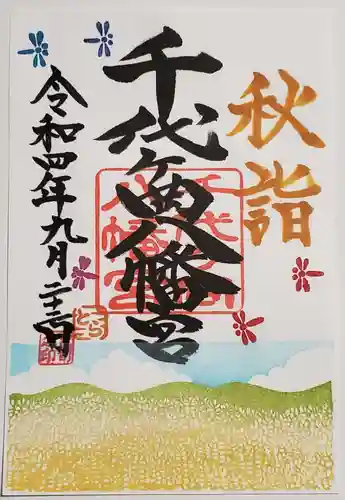 秋詣
千代ヶ岡八幡宮
令和四年九月二十三日